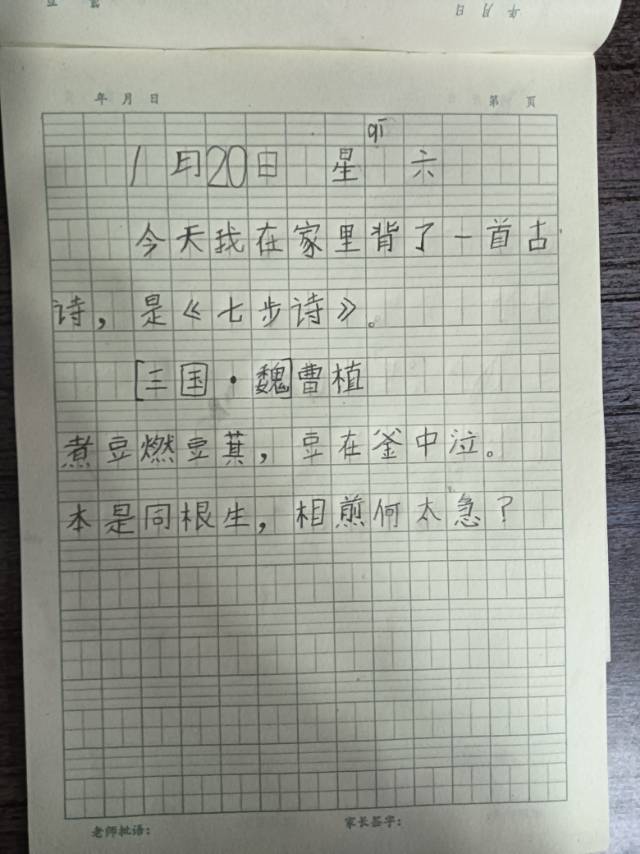 年 月 日
年 月 日 第 页
qī
1月20日 星 六
今天我在家里背了一首古
诗，是《七步诗》。
[三国·魏]曹植
煮豆燃豆萁，豆在釜中泣。
本是同根生，相煎何太急？
老师批语： 家长签字：